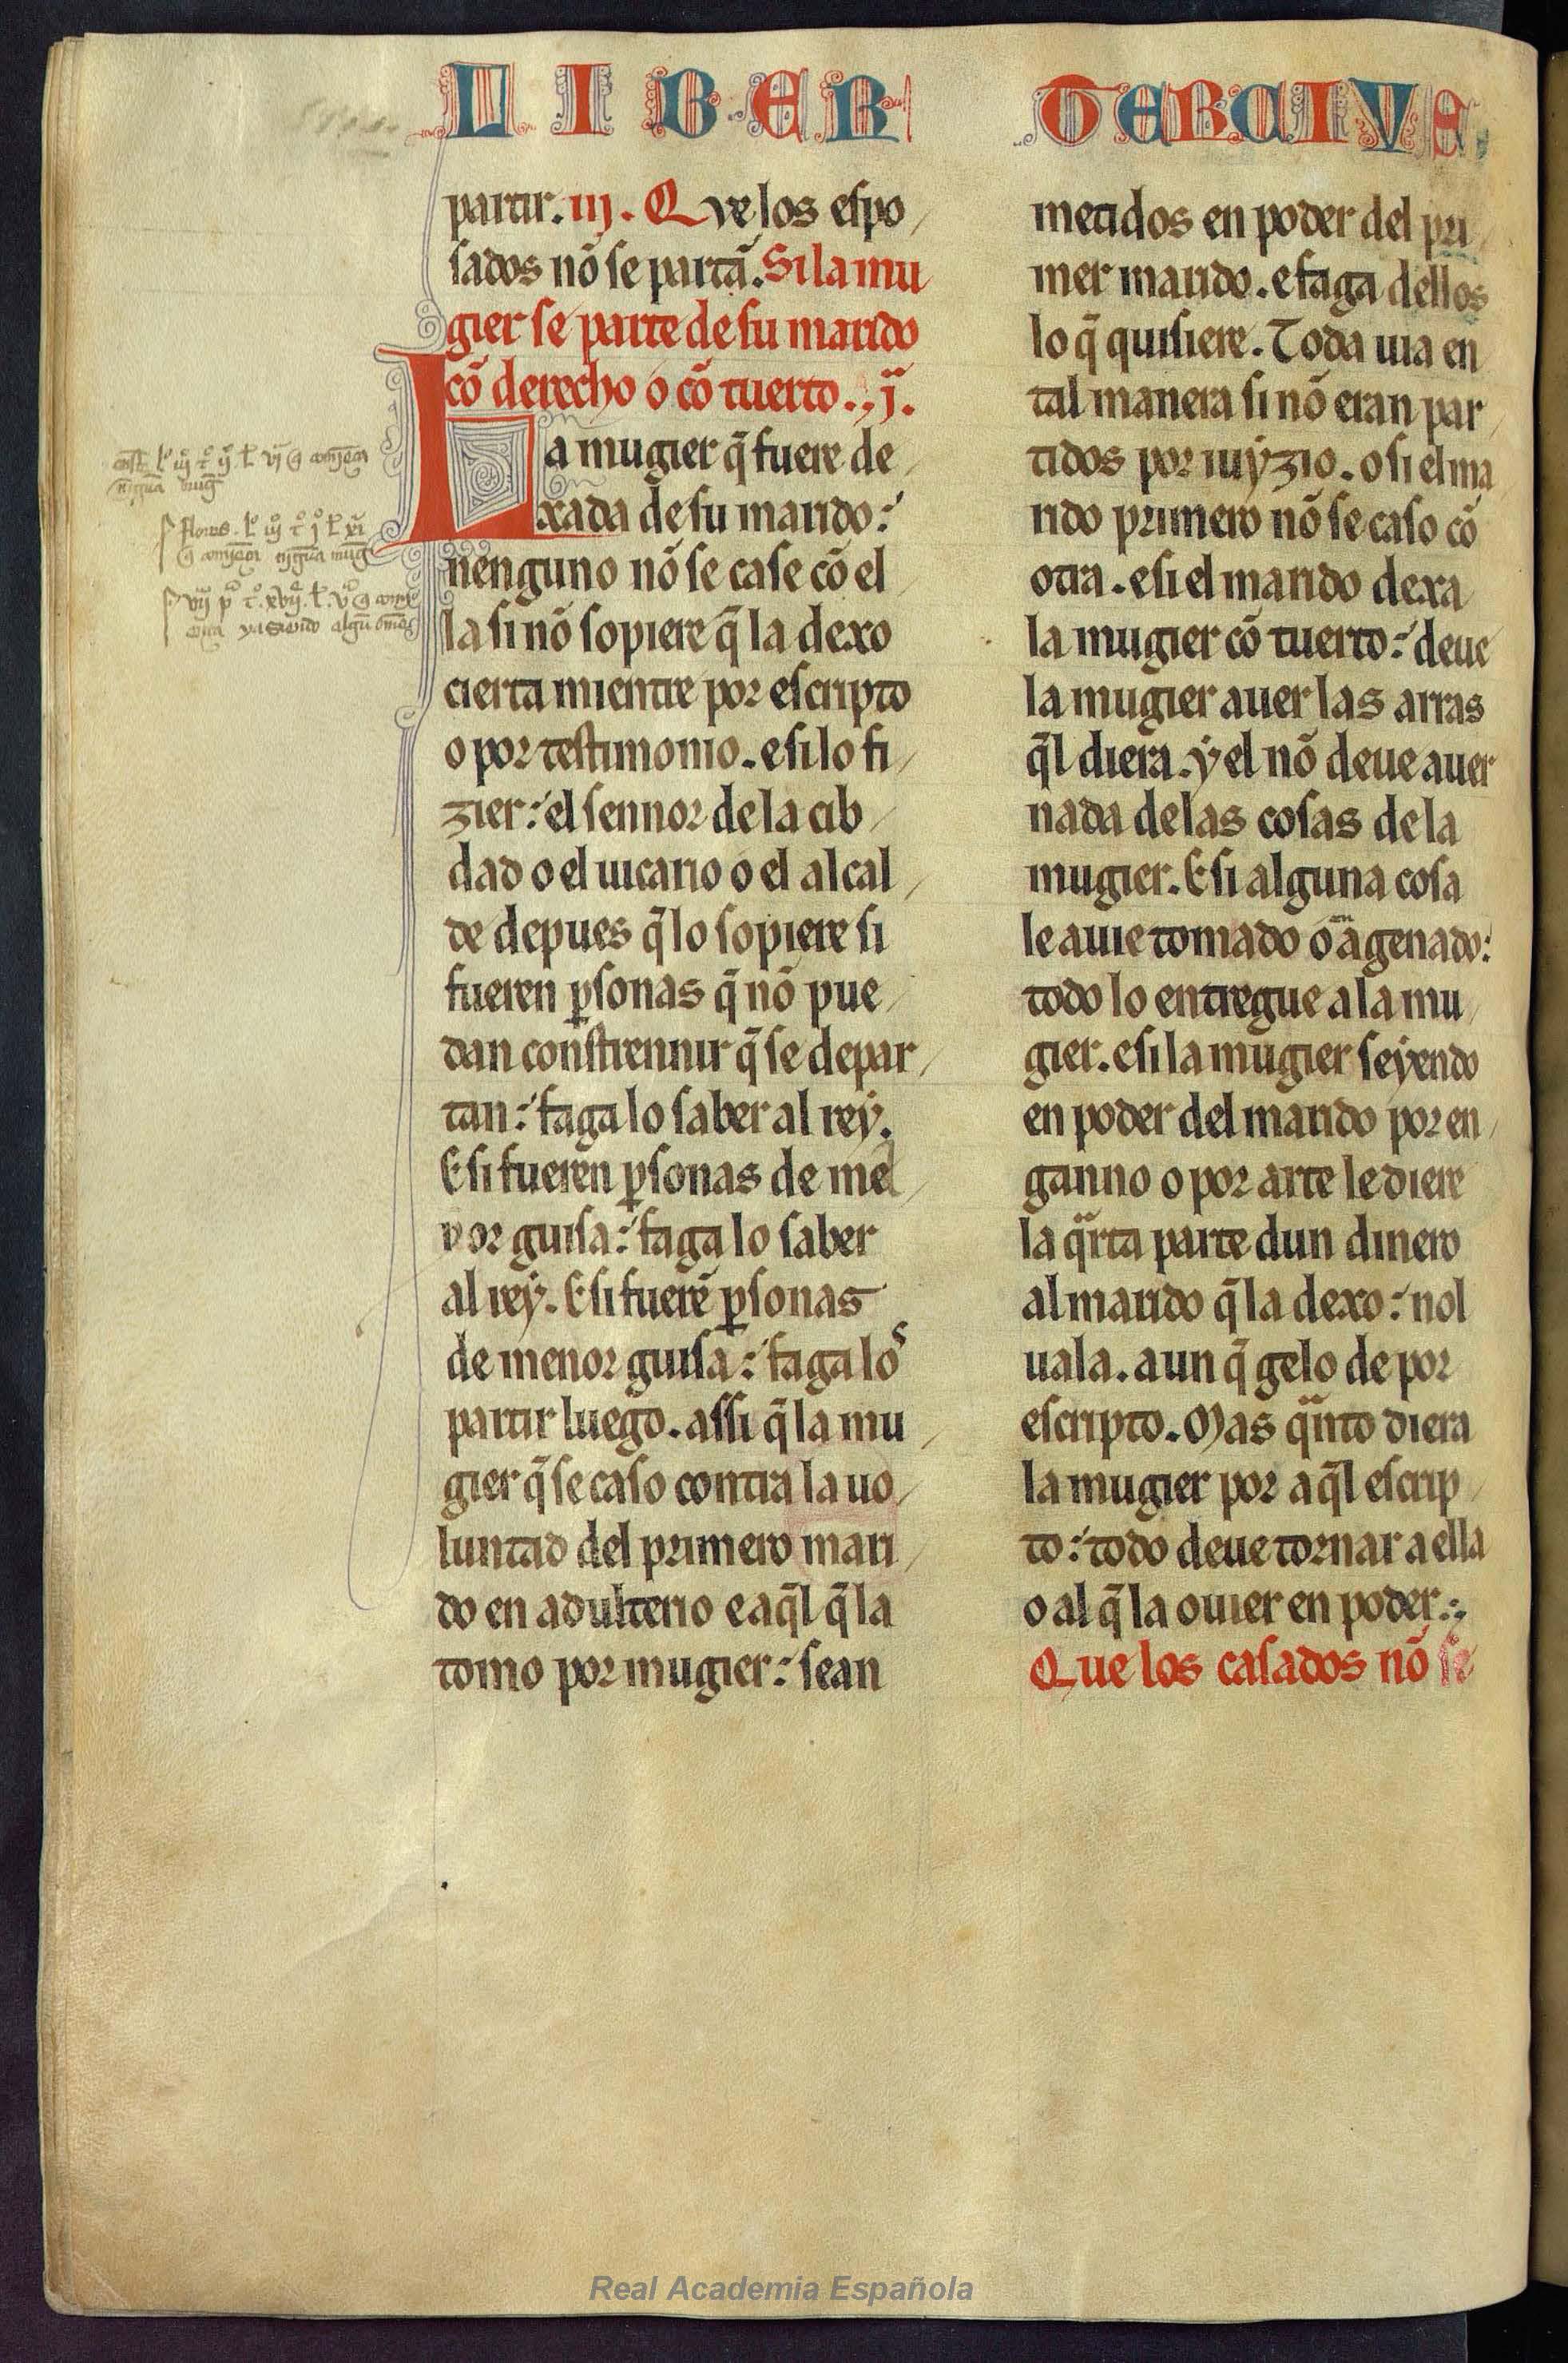 LIBER TERCIVS
partir. iij. Que los espo
sados nõ se partã. Si la mu
gier se parte de su marido
cõ derecho o cõ tuerto. j.ª
La mugier q̃ fuere de
xada de su marido:
nenguno nõ se case cõ el
la si nõ sopiere q̃ la dexo
cierta mientre por escripto
o por testimonio. e si lo fi
zier: el sennor de la cib
dad o el uicario o el alcal
de depues q̃ lo sopiere si
fueren ꝑsonas q̃ nõ pue
dan constrennir q̃ se depar
tan: faga lo saber al rey.
E si fueren ꝑsonas de me
yor guisa: faga lo saber
al rey. E si fuerẽ ꝑsonas
de menor guisa: faga los
partir luego. assi q̃ la mu
gier q̃ se caso contra la uo
luntad del primero mari
do en adulterio e aq̃l q̃ la
tomo por mugier: sean
metidos en poder del pri
mer marido. e faga dellos
lo q̃ quisiere. Toda uia en
tal manera si nõ eran par
tidos por iuyzio. o si el ma
rido primero nõ se caso cõ
otra. e si el marido dexa
la mugier cõ tuerto: deue
la mugier auer las arras
q̃l diera. y el nõ deue auer
nada de las cosas de la
mugier. E si alguna cosa
le auie tomado o agenado:
todo lo entregue a la mu
gier. e si la mugier seyendo
en poder del marido por en
ganno o por arte le diere
la qªrta parte dun dinero
al marido q̃ la dexo: nol
uala. aun q̃ gelo de por
escripto. Mas qªnto diera
la mugier por aq̃l escrip
to: todo deue tornar a ella
o al q̃ la ouier en poder.
Que los casados nõ se
Real Academia Española